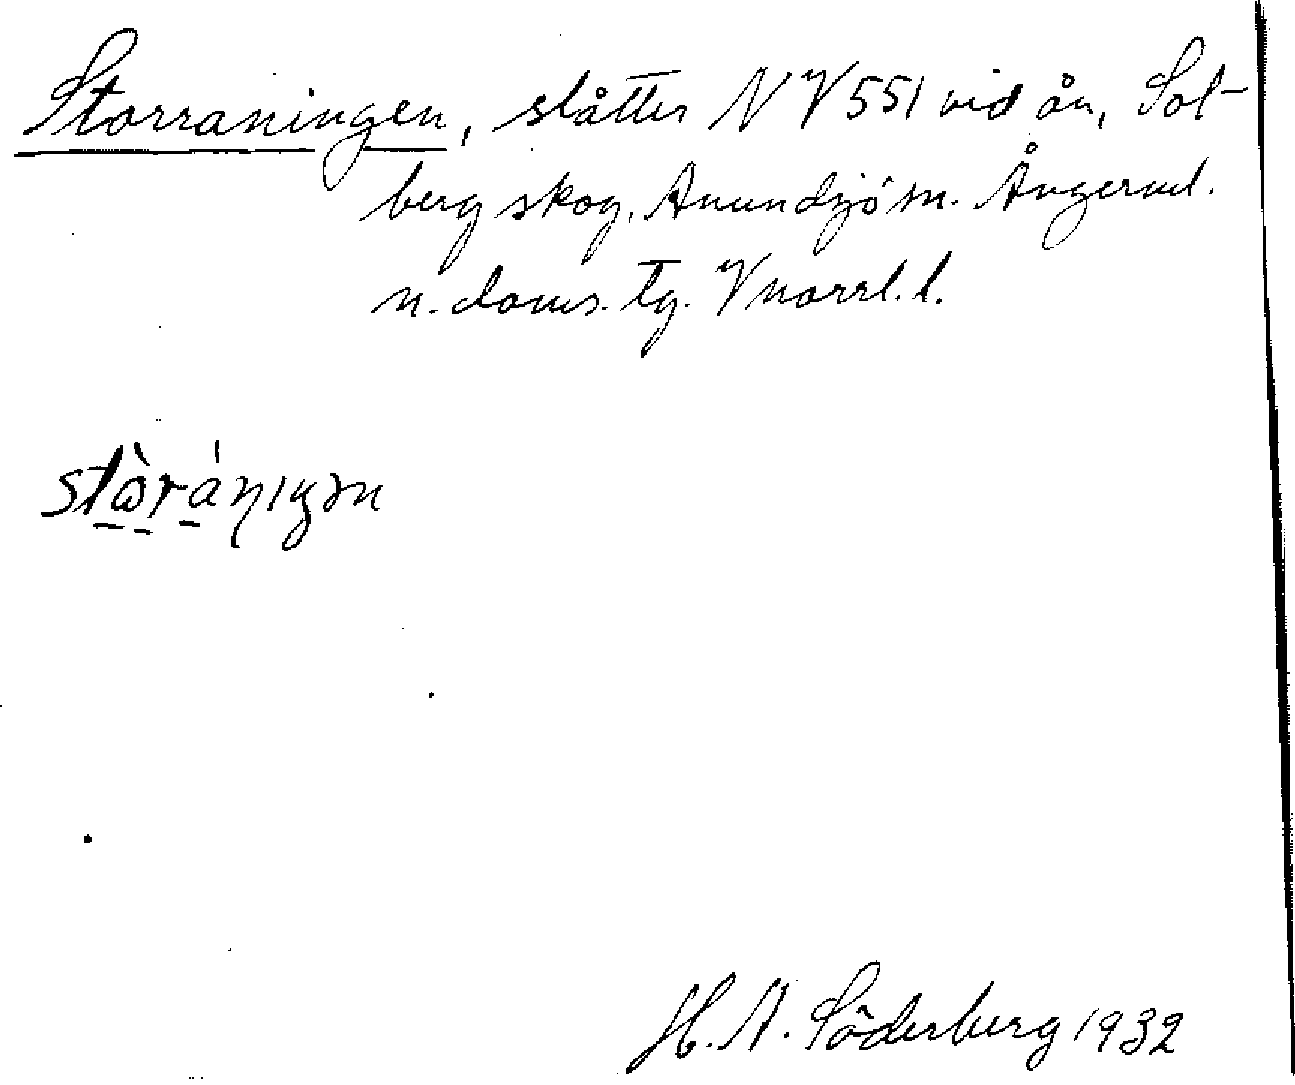 Storraningen, slåtter NV 551 vid ån, Sol-
berg skog, Anundsjö sn. Ångerml.
n. doms. tg. Vnorrl. l.
H. A. Söderberg 1932